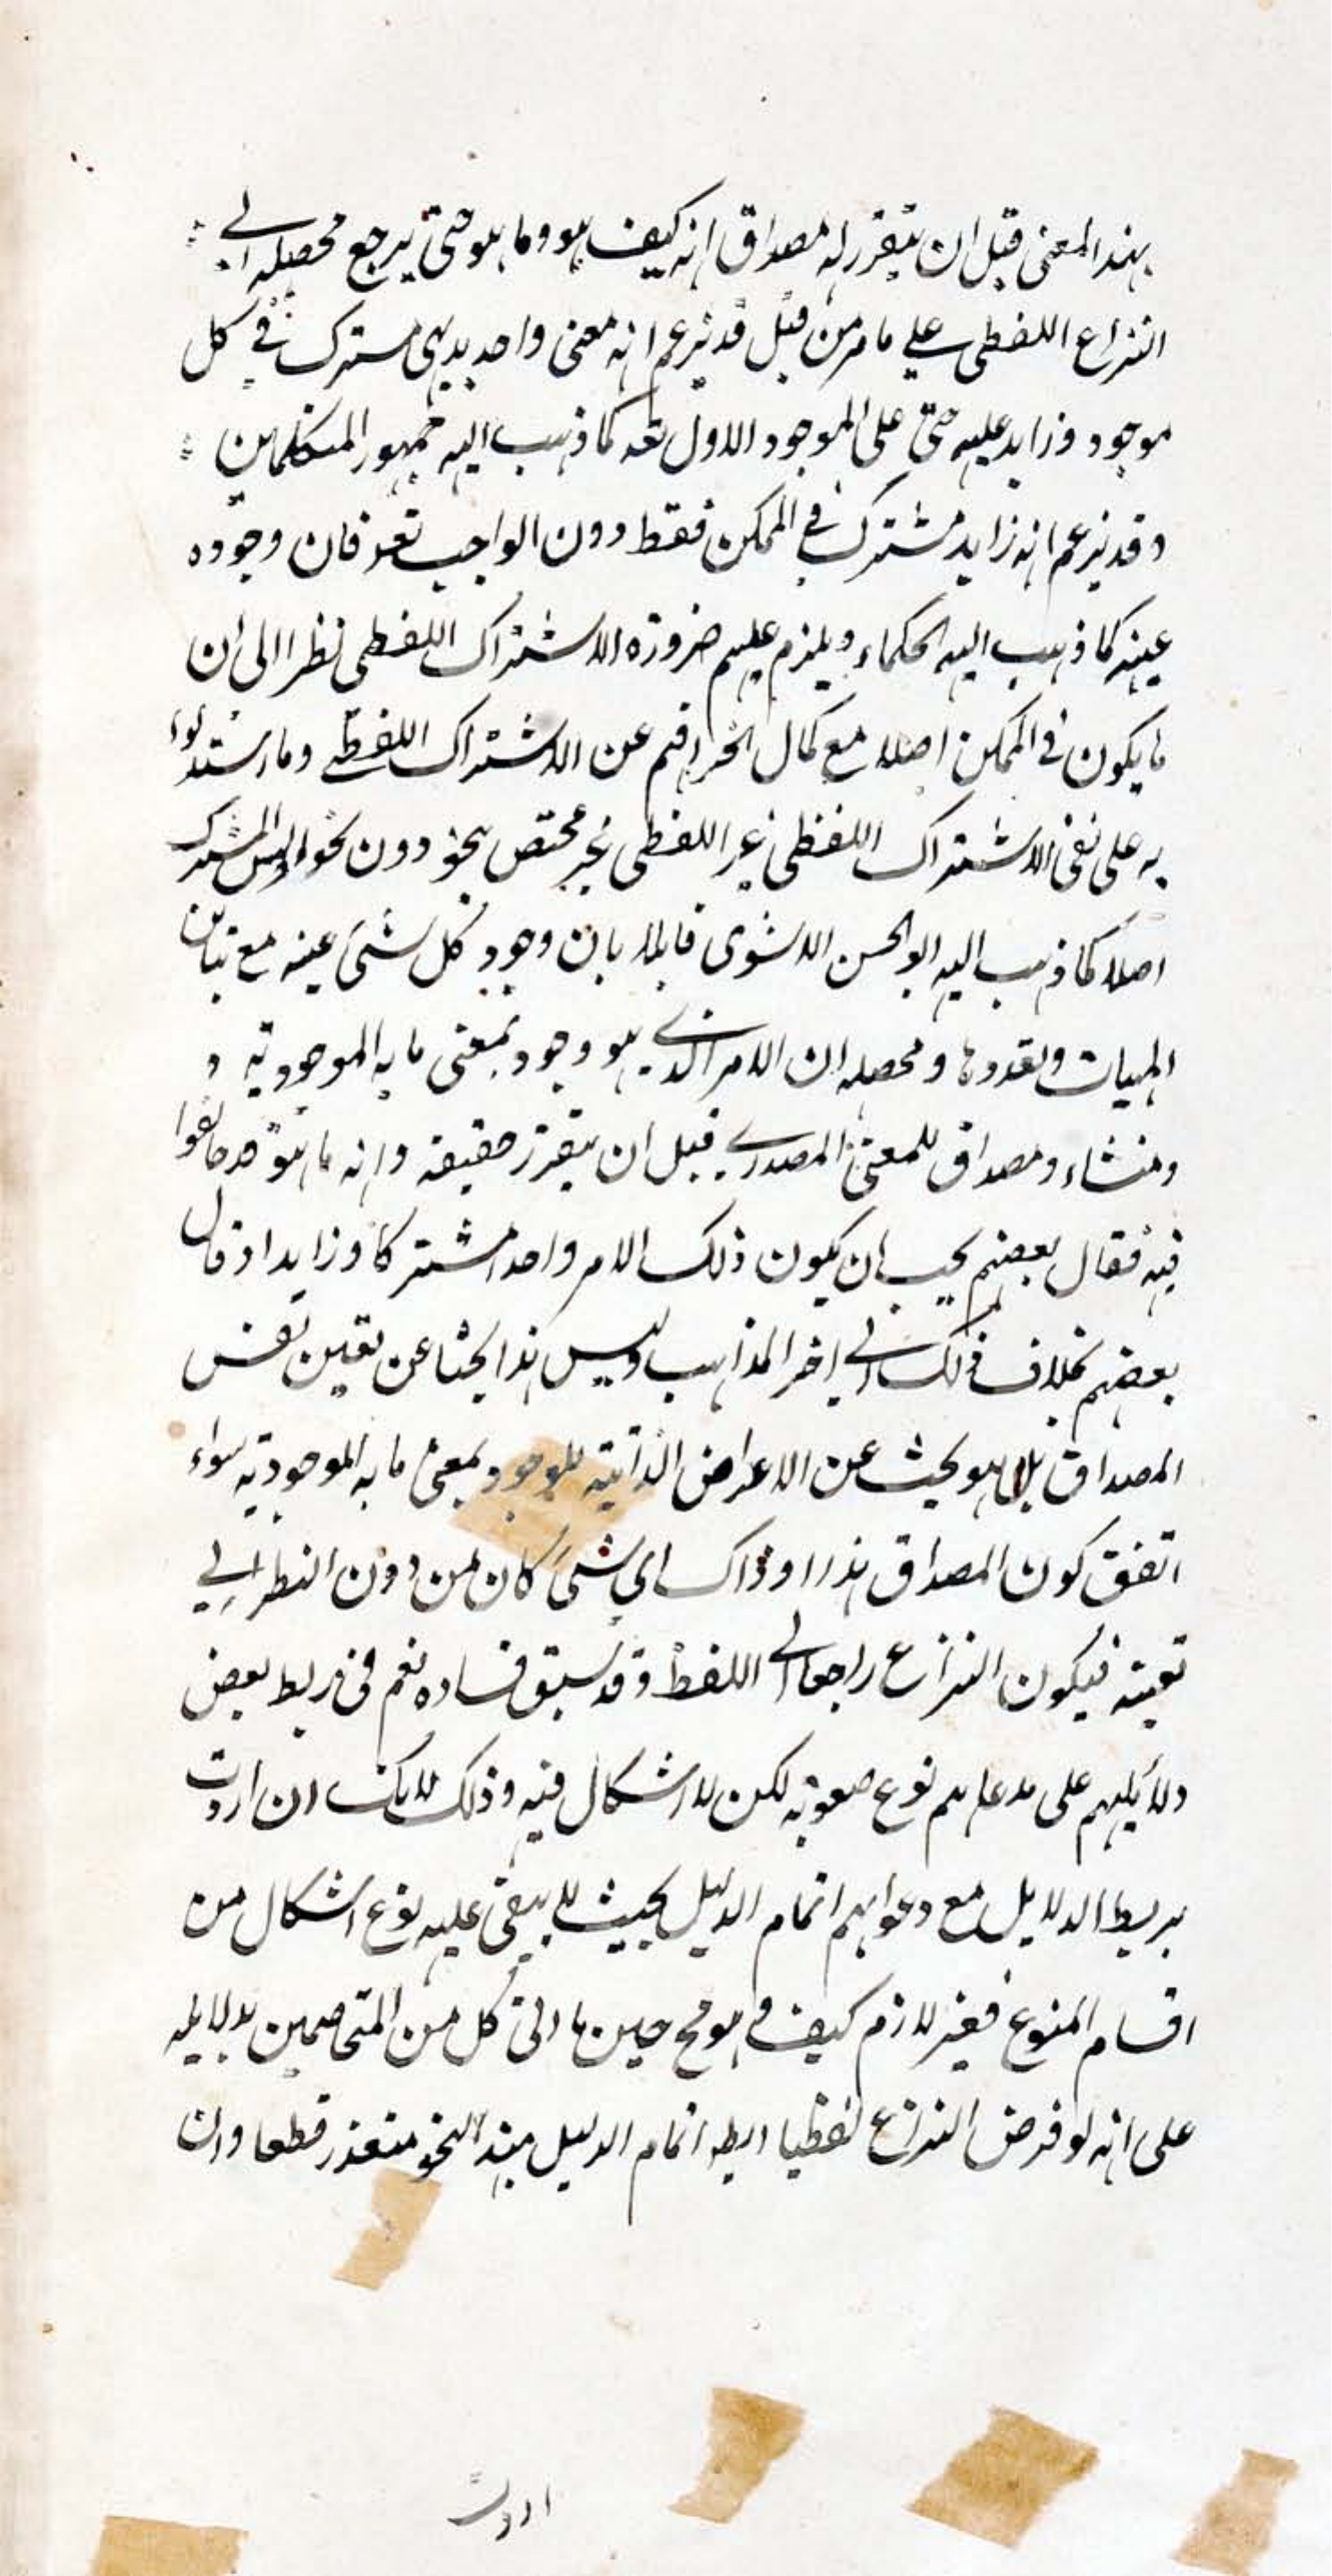 بهذا المعنى قبل ان يتقرر له مصداق انه كيف هو وما هو حتى يرجع محصله الى
النزاع اللفظى على ما مر من قبل قد يزعم انه معنى واحد بديهى مشترك فى كل
موجود وزايد عليه حتى على الموجود الاول تعه كما ذهب اليه جمهور المتكلمين
وقد يزعم انه زايد مشترك فى الممكن فقط دون الواجب تعه فان وجوده
عينه كما ذهب اليه الحكماء ويلزم عليهم ضرورة الاشتراك اللفظى نظرا الى ان
ما يكون فى الممكن اصلا مع كمال انحرافهم عن الاشتراك اللفظى وما استدلوا
به على نفى الاشتراك اللفظى غير اللفظى غير مختص بنحو دون نحو المشترك
اصلا كما ذهب اليه ابو الحسن الاشعرى قايلا بان وجود كل شئ عينه مع تباين
المهيات وتعددها ومحصله ان الامر الذى هو وجود بمعنى ما به الموجودية و
ومنشاء ومصداق للمعنى المصدرى قبل ان يتقرر حقيقته وانه ما هو قد خالفوا
فيه فقال بعضهم يجب ان يكون ذلك الامر واحدا مشتركا وزايدا او قال
بعضهم بخلاف ذلك الى اخر المذاهب وليس هذا بحثا عن تعين نفس
المصداق بل هو بحث عن الاعراض الذاتية للوجود بمعنى ما به الموجودية سواء
اتفق كون المصداق هذا او ذاك اى شئ كان من دون النظر الى
تعينه فيكون النزاع راجعا الى اللفظ وقد سبق فساده نعم فى ربط بعض
دلايلهم على مدعاهم نوع صعوبة لكن لا اشكال فيه وذلك لانك ان اردت
بربط الدلايل مع دعواهم اتمام الدليل بحيث لا يبقى عليه نوع اشكال من
اقسام المنوع فغير لازم كيف و هو مح حين ما اتى كل من المتخاصمين بدلايله
على انه لو فرض النزاع لفظيا ربط اتمام الدليل بهذا النحو متعذر قطعا وان
اردت